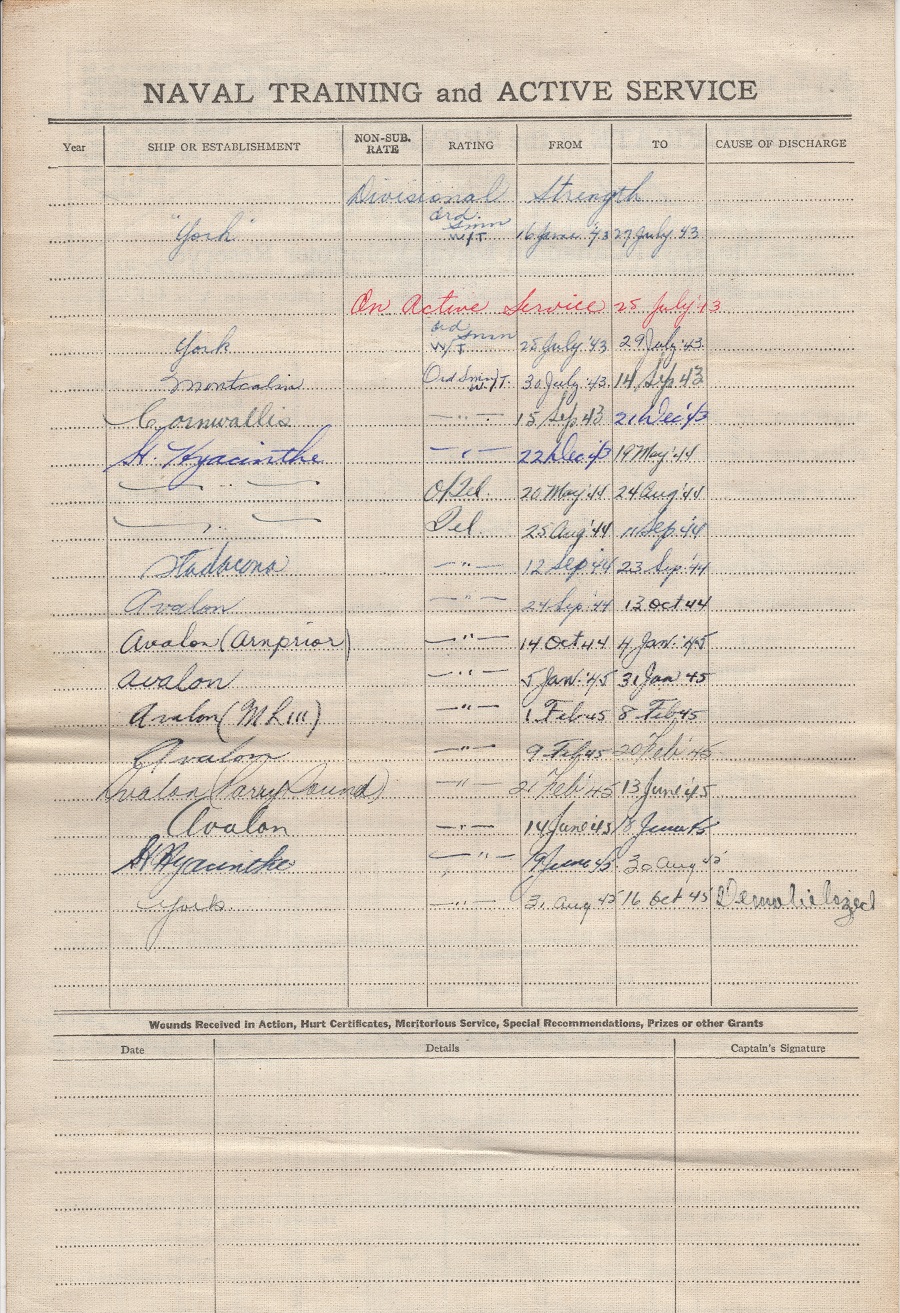 NAVAL TRAINING and ACTIVE SERVICE
Year SHIP OR ESTABLISHMENT NON-SUB. RATE RATING FROM TO CAUSE OF DISCHARGE
Divisional Strength
"York" Ord. Smn W/T 16 '43 27 July '43
On Active Service 25 July '43
York Ord Smn W/T 25 July '43 29 July '43
Montcalm Ord Smn W/T. 30 July '43 14 Sep 43
Cornwallis —"— 15 Sep 43 21 Dec '43
St. Hyacinthe —"— 22 Dec '43 19 May '44
—"— O/Tel. 20 May '44 24 Aug '44
—"— Tel. 25 Aug '44 11 Sep '44
Stadacona —"— 12 Sep '44 23 Sep '44
Avalon —"— 24 Sep '44 13 Oct 44
Avalon (Arnprior) —"— 14 Oct 44 4 Jan. '45
Avalon —"— 5 Jan. '45 31 Jan 45
Avalon (ML 111) —"— 1 Feb 45 8 Feb 45
Avalon —"— 9 Feb 45 20 Feb '45
Avalon (Parry Sound) —"— 21 Feb '45 13 June '45
Avalon —"— 14 June '45 18 June 45
St Hyacinthe —"— 19 June 45 30 Aug 45
York —"— 31 Aug 45 16 Oct 45 Demobilized
Wounds Received in Action, Hurt Certificates, Meritorious Service, Special Recommendations, Prizes or other Grants
Date Details Captain's Signature